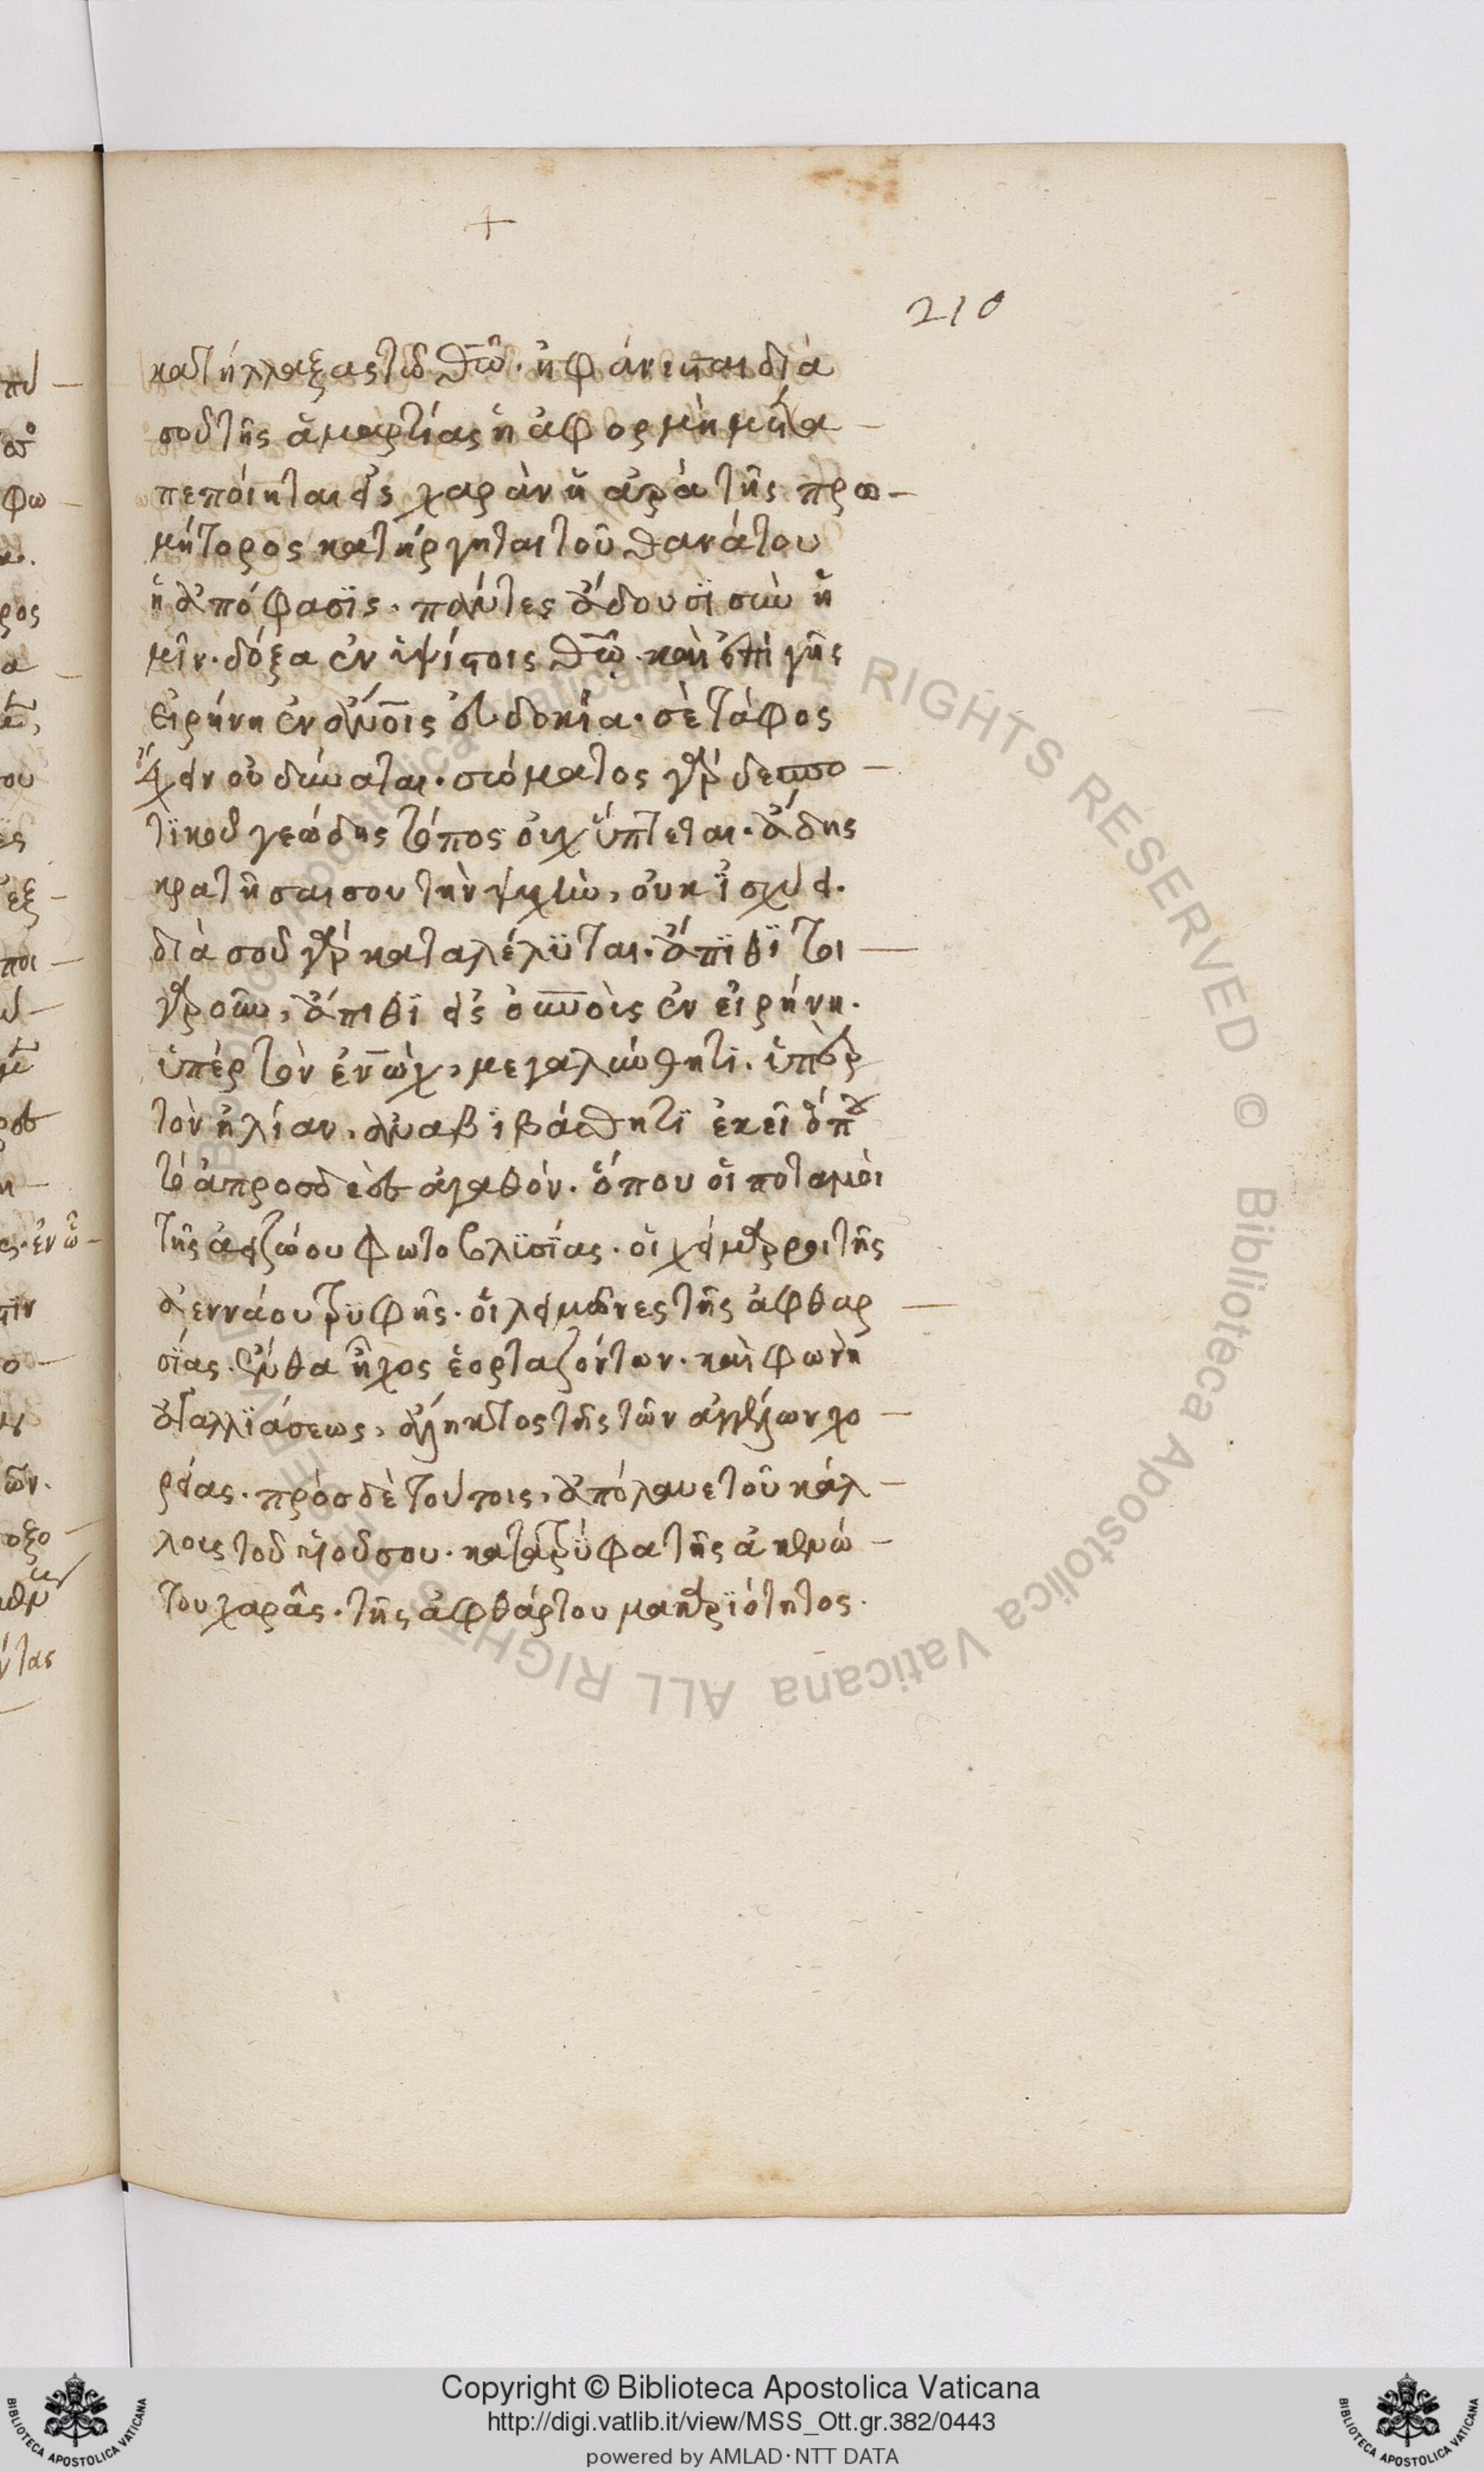 +
210
κατήλλαξας τῶ θ̅ω̅. ἠφάνισται διὰ
σοῦ τῆς ἁμαρτίας ἡ ἀφορμὴ μετα
πεποίηται εἰς χαρὰν ἡ ἀρὰ τῆς προ-
μήτορος κατήργηται τοῦ θανάτου
ἡ ἀπόφασϊς. πάντες ἄδουσϊ σὺν ἡ
μῖν. δόξα ἐν ὑψίστοις θ̅ω̅. καὶ ἐπὶ γῆς
εἰρήνη ἐν ἀν̅ο̅ις εὐδοκία. σὲ τάφος
ἔχειν οὐ δύναται. σώματος γὰρ δεσπο-
τϊκοῦ γεώδης τόπος οὐχ ἅπτεται. ἅδης
κρατῆσαι σου τὴν ψυχὴν, οὐκ ἴσχυει.
διὰ σοῦ γὰρ καταλέλϋται. ἄπϊθϊ τοι-
γαροῦν, ἄπιθϊ εἰς ο̅υ̅ν̅οὺς ἐν εἰρήνη.
ὑπὲρ τὸν ἐνὼχ, μεγαλύνθητι. ὑπὲρ
τὸν ἠλίαν, ἀναβϊβάσθητϊ ἐκεῖ ὅπου
τὸ ἀπροσδεὲς ἀγαθόν. ὅπου οἱ ποταμοὶ
τῆς ἀειζώου φωτοβλϊσίας. οἱ χείμαρροι τῆς
ἀεννάου τρϋφῆς. οἱ λειμῶνες τῆς ἀφθαρ-
σϊας. ἔνθα ἦχος ἑορταζόντων. καὶ φωνὴ
ἀγαλλϊάσεως, ἄληκτος τῆς τῶν ἀγγέλων χο-
ρείας. πρὸς δὲ τούτοις, ἀπόλαυε τοῦ κάλ-
λους τοῦ υἱοῦ σου. κατατρϋφα τῆς ἀκενώ-
του χαρᾶς. τῆς ἀφθάρτου μακαρϊότητος.
Copyright © Biblioteca Apostolica Vaticana
http://digi.vatlib.it/view/MSS_Ott.gr.382/0443
powered by AMLAD·NTT DATA